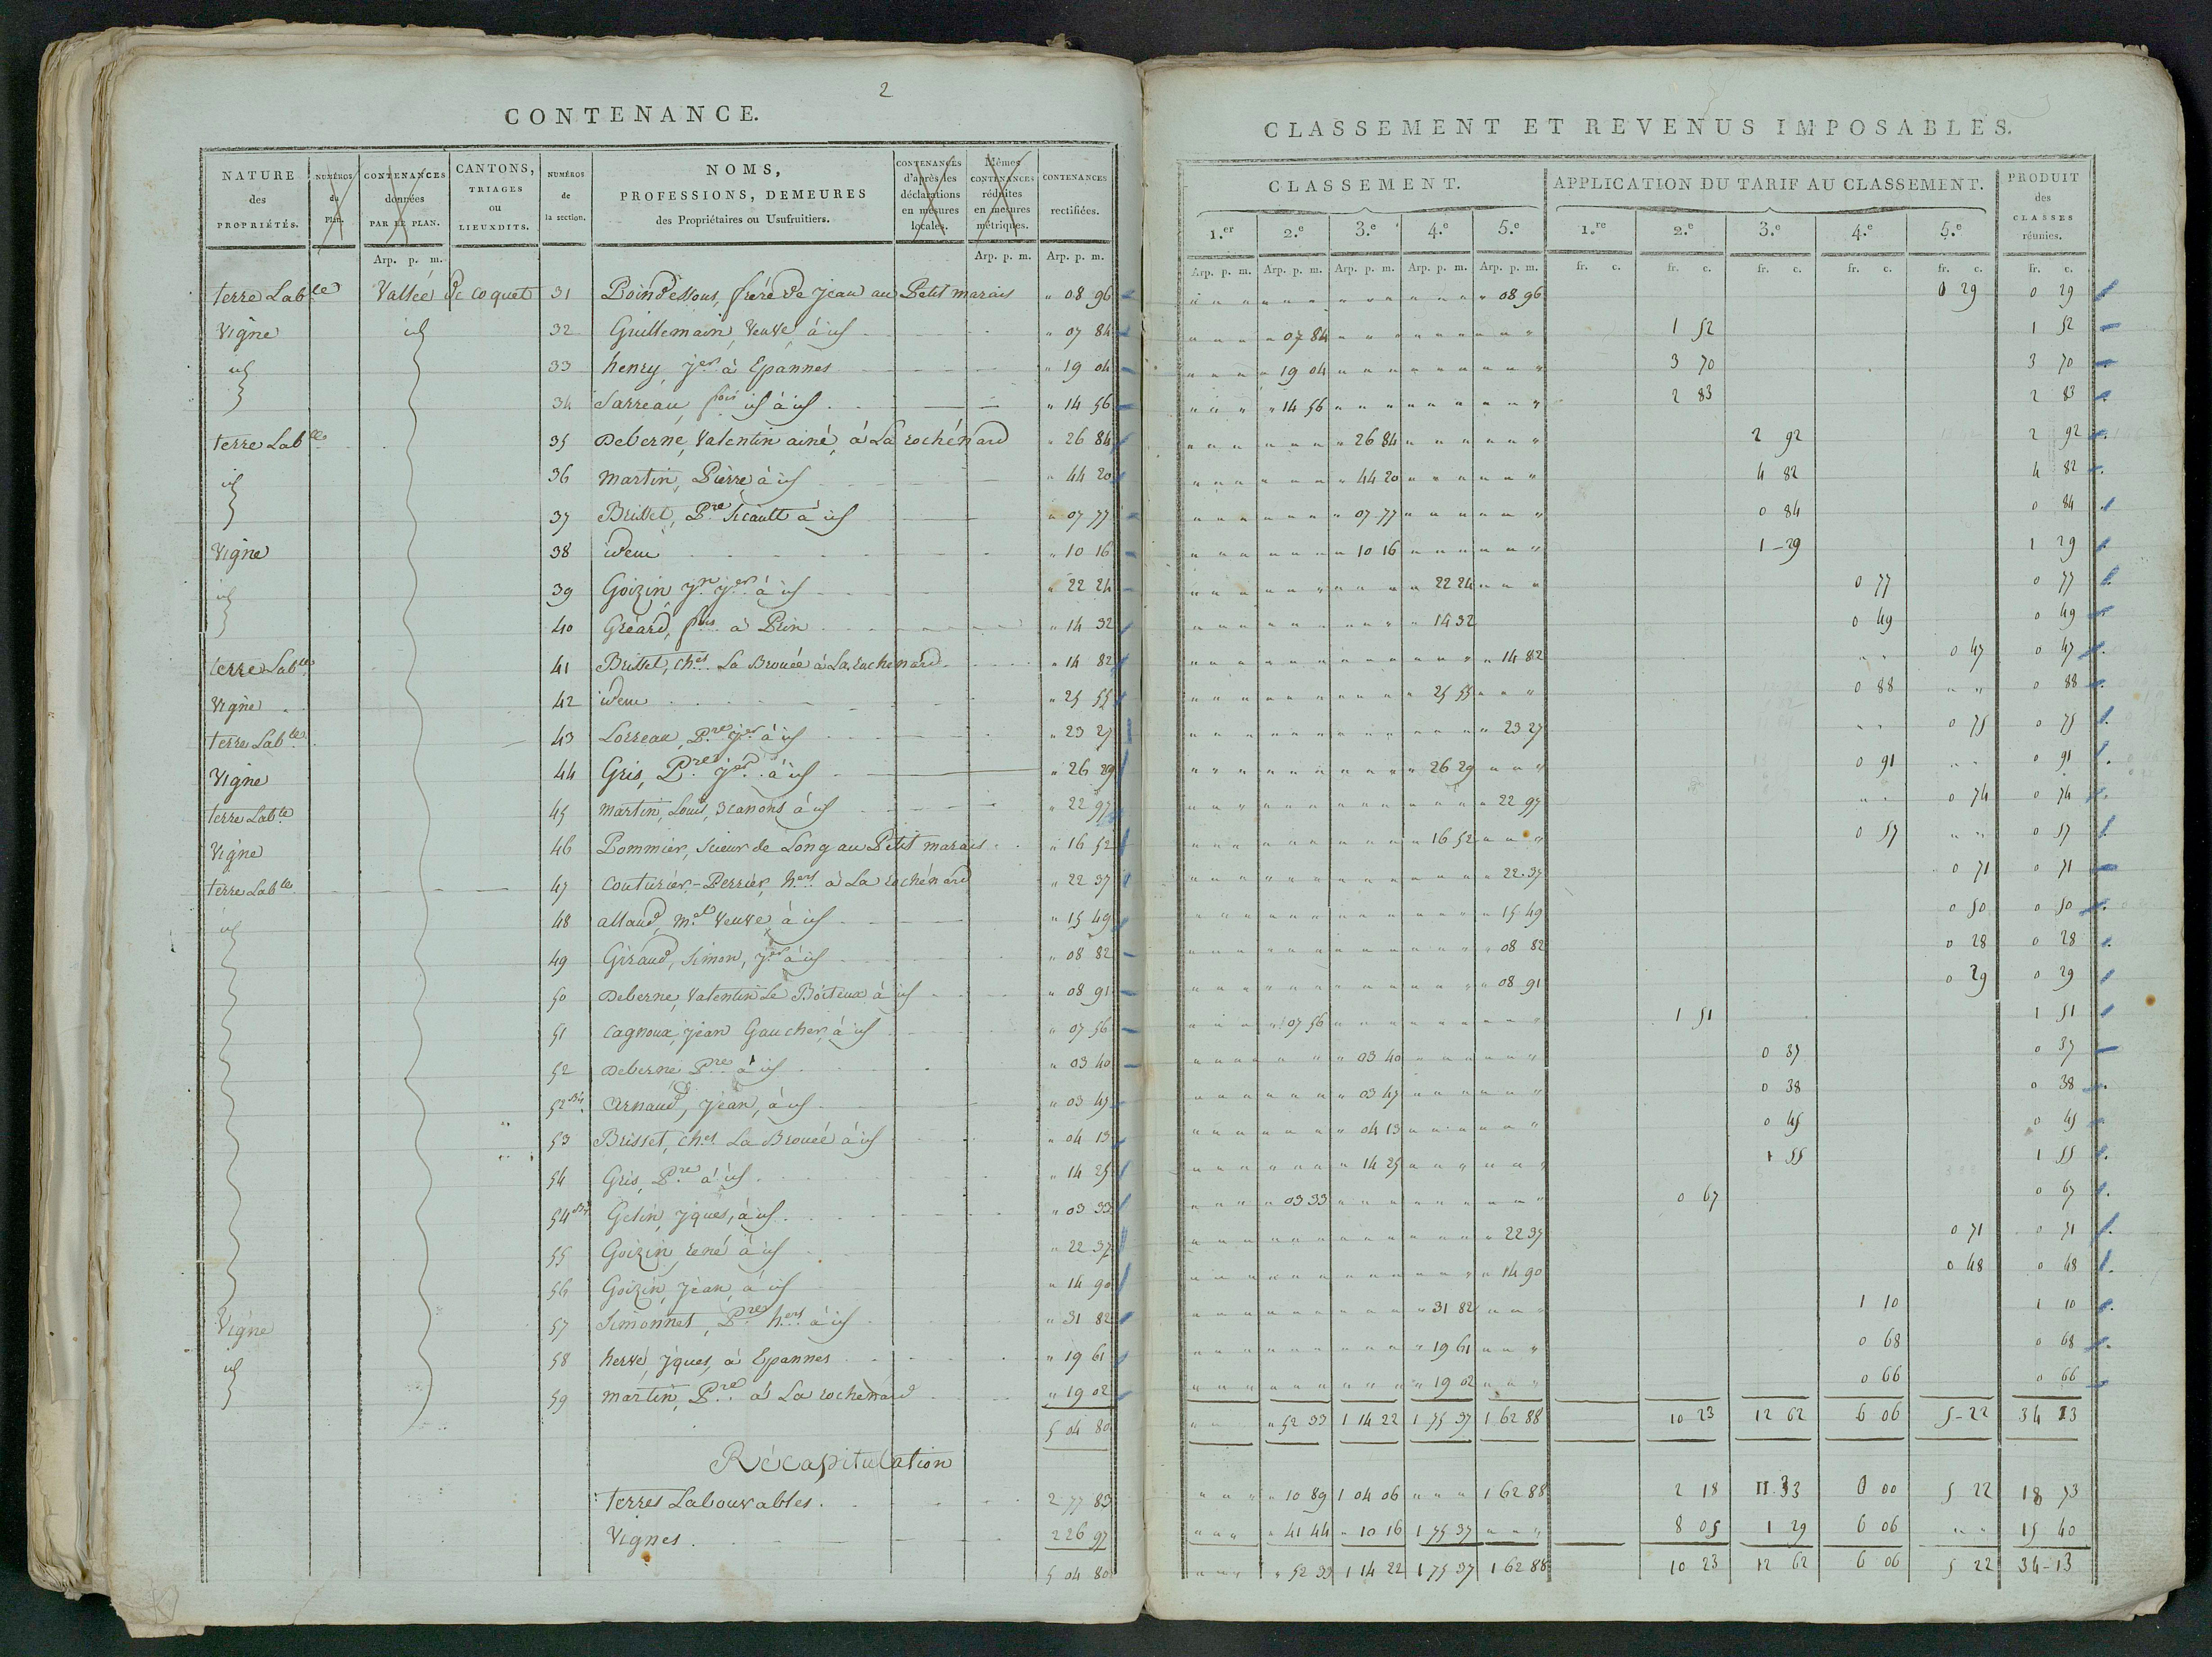 2
CONTENANCE.
NATURE des PROPRIÉTÉS. | NUMÉROS du Plan. | CONTENANCES données PAR LE PLAN. | CANTONS, TRIAGES ou LIEUXDITS. | NUMÉROS de la section. | NOMS, PROFESSIONS, DEMEURES des Propriétaires ou Usufruitiers. | CONTENANCES d'après les déclarations en mesures locales. | Mêmes CONTENANCES réduites en mesures métriques. | CONTENANCES rectifiées.
Arp. p. m. | Arp. p. m. | Arp. p. m.
terre Lab.le Vallée de coquet 31 Poindessous, frère de Jean au Petit marais " 08 96
Vigne id 32 Guillemain, Veuve, à id " 07 84
id 33 henry, J.es à Epannes " 19 04
34 Sarreau fçois id à id " 14 56
terre Lab.le 35 Deberne, Valentin ainé, à La rochénard " 26 84
id 36 martin, Pierre à id " 44 20
37 Brisset, P.re Sicault à id " 07 77
Vigne 38 idem " 10 16
id 39 Goizin J.n J.es à id " 22 24
40 Gréard, f.ois à Prin " 14 32
terre Lab.le 41 Brisset, ch.es La Brouée à La rochenard " 14 82
Vigne 42 idem " 25 55
terre Lab.le 43 Lorreau, P.re J.es à id " 23 27
Vigne 44 Gris, P.re J.es à id " 26 29
terre Lab.le 45 martin, Louis, 3 canons à id " 22 97
Vigne 46 Pommier, Scieur de Long au Petit marais " 16 52
terre Lab.le 47 couturier-Perrier, h.ers à La rochénard " 22 37
id 48 allaud, m.el Veuve à id " 15 49
49 Giraud, Simon, J.es à id " 08 82
50 Deberne, Valentin Le Boiteux à id " 08 91
51 cagnoux, jean Gaucher, à id " 07 56
52 Deberne P.re à id " 03 40
52 Bis Arnaud, Jean, à id " 03 47
53 Brisset, ch.es La Brouée à id " 04 13
54 Gris, P.re à id " 14 25
54 Bis Gelin, Jques, à id " 03 33
55 Goizin, rené à id " 22 37
56 Goizin, Jean, à id " 14 90
Vigne 57 Simonnet, P.re h.ers à id " 31 82
id 58 hervé, Jques, à Epannes " 19 61
59 martin, P.re à La rochenard " 19 02
5 04 80
Récapitulation
terres Labourables 2 77 83
Vignes 2 26 97
5 04 80
CLASSEMENT ET REVENUS IMPOSABLES.
CLASSEMENT. | APPLICATION DU TARIF AU CLASSEMENT. | PRODUIT des CLASSES réunies.
1.er | 2.e | 3.e | 4.e | 5.e | 1.re | 2.e | 3.e | 4.e | 5.e
Arp. p. m. | Arp. p. m. | Arp. p. m. | Arp. p. m. | Arp. p. m. | fr. c. | fr. c. | fr. c. | fr. c. | fr. c. | fr. c.
" 08 96 0 29 0 29
" 07 84 1 52 1 52
" 19 04 3 70 3 70
" 14 56 2 83 2 83
" 26 84 2 92 2 92
" 44 20 4 82 4 82
" 07 77 0 84 0 84
" 10 16 1 29 1 29
" 22 24 0 77 0 77
" 14 32 0 49 0 49
" 14 82 0 47 0 47
" 25 55 0 88 0 88
" 23 27 0 75 0 75
" 26 29 0 91 0 91
" 22 97 0 74 0 74
" 16 52 0 57 0 57
" 22 37 0 71 0 71
" 15 49 0 50 0 50
" 08 82 0 28 0 28
" 08 91 0 29 0 29
" 07 56 1 51 1 51
" 03 40 0 37 0 37
" 03 47 0 38 0 38
" 04 13 0 45 0 45
" 14 25 1 55 1 55
" 03 33 0 67 0 67
" 22 37 0 71 0 71
" 14 90 0 48 0 48
" 31 82 1 10 1 10
" 19 61 0 68 0 68
" 19 02 0 66 0 66
" 52 33 1 14 22 1 75 37 1 62 88 10 23 12 62 6 06 5-22 34 13
" 10 89 1 04 06 " " " 1 62 88 2 18 11 33 0 00 5 22 18 73
" 41 44 " 10 16 1 75 37 " " " 8 05 1 29 6 06 " " 15 40
" 52 33 1 14 22 1 75 37 1 62 88 10 23 12 62 6 06 5 22 34-13